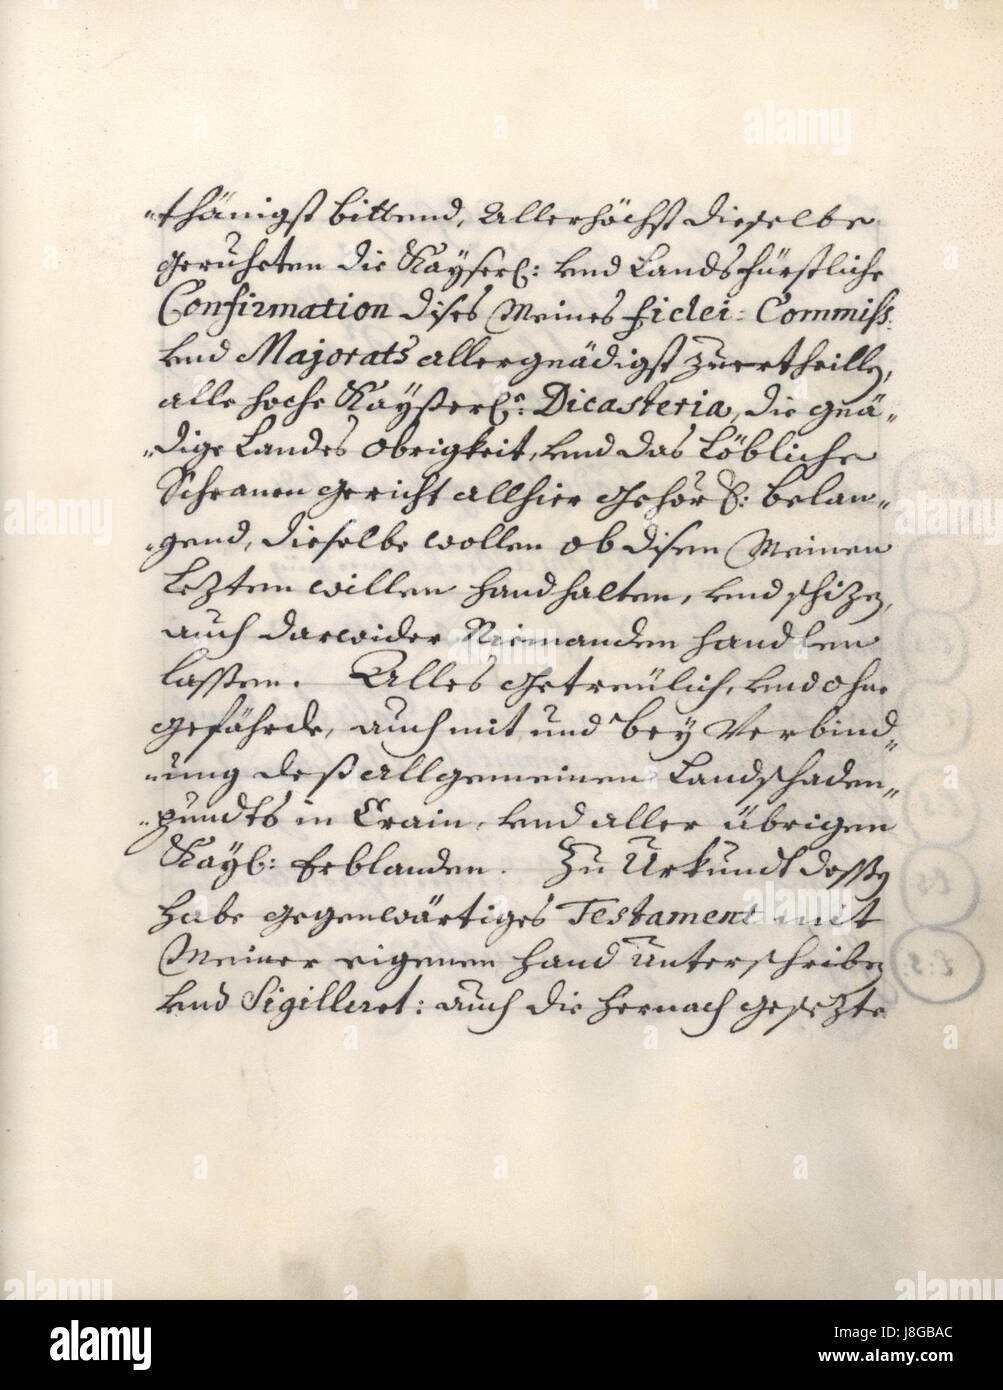 "thänigst bittend, Allerhöchst dieselbe
geruheten die Kayserl: vnd Landsfürstliche
Confirmation dises Meines Fidei=Commiss:
vnd Majorats allergnädigst zuertheillen,
alle hoche Kayßerl: Dicasteria, die gnä"
"dige Landes Obrigkeit, vnd das Löbliche
Schranen gericht allhier gehörs: belan"
"gend, dieselbe wollen ob disen Meinen
Lezten willen handhalten, vnd schizen,
auch darwider Niemanden handlen
lassen. Alles getreülich, vnd ohne
gefährde, auch mit und bey Verbind"
"ung deß allgemeinen Landschaden"
"pundts in Crain, vnd aller übrigen
Kayl: Erblanden. Zu Urkundt dessen
habe gegenwärtiges Testament mit
Meiner eigenen hand unterschriben
vnd Sigilleret: auch die hernach gesezte
alamy
J8GBAC
www.alamy.com